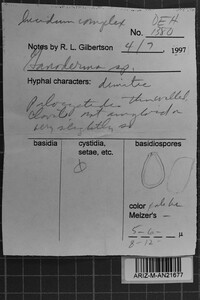 lucidum complex
DEH
No. 1380
Notes by R. L. Gilbertson 4/7, 1997
Ganoderma sp.
Hyphal characters: dimitic
thin walled,
not amyloid or
very slightly so
basidia
cystidia, setae, etc.
basidiospores
color pale br
Melzer's -
5-6-
8-12 µ
ARIZ-M-AN21677